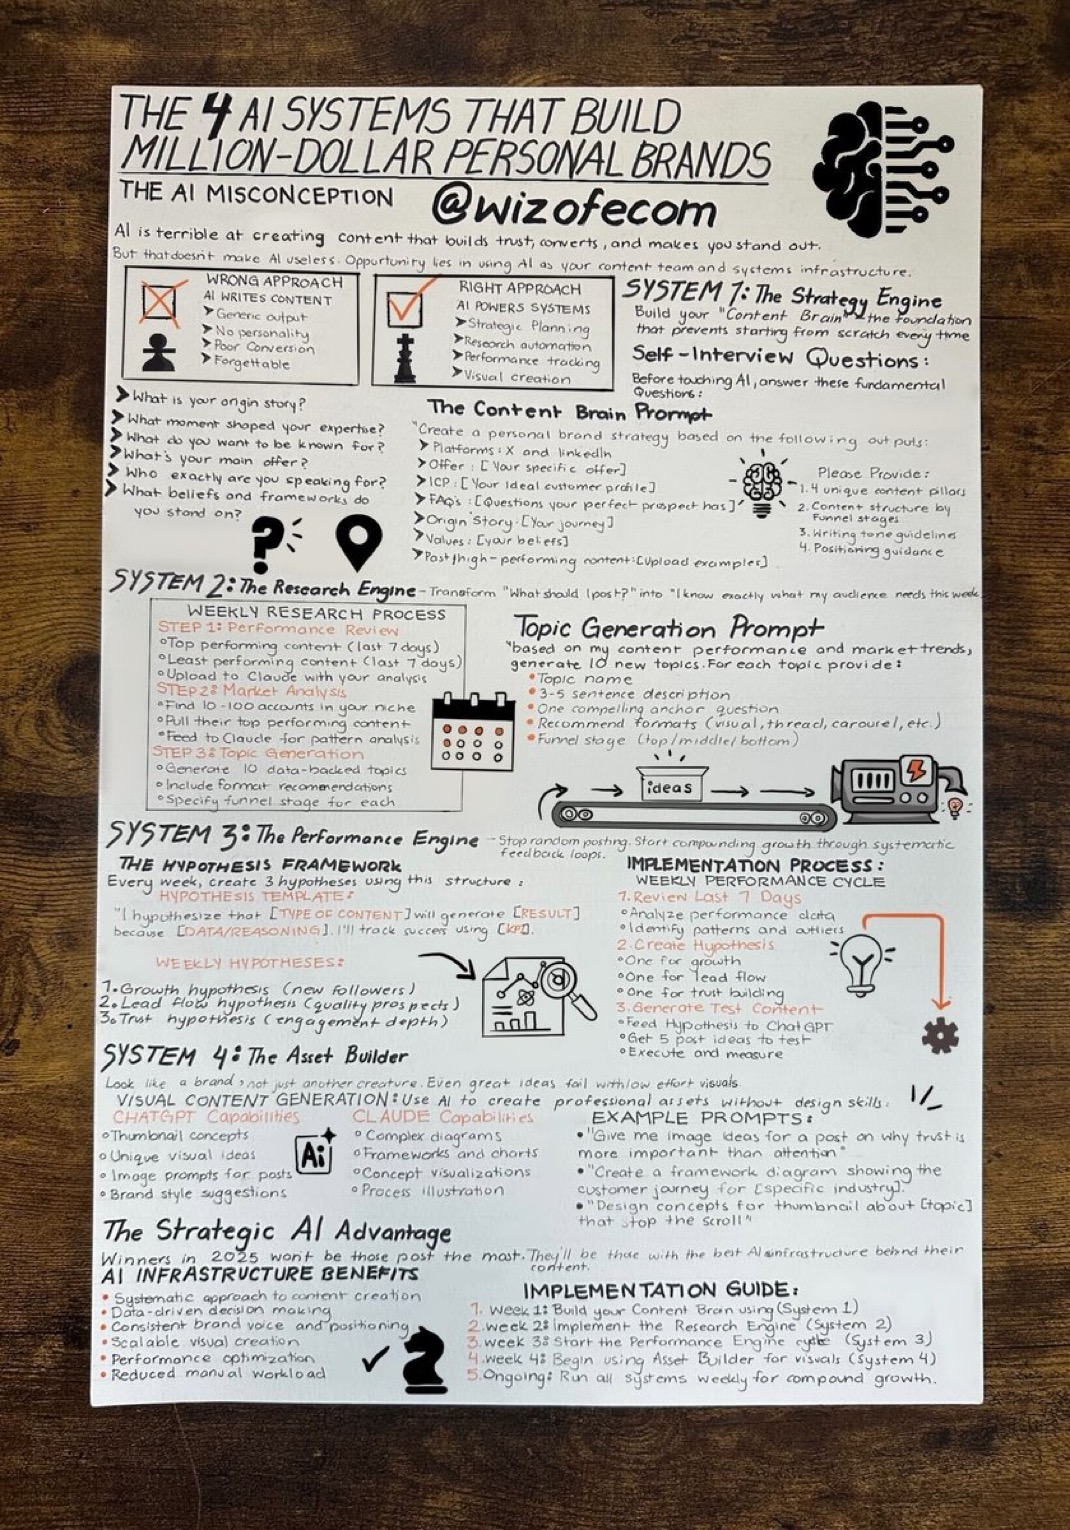 THE 4 AI SYSTEMS THAT BUILD
MILLION-DOLLAR PERSONAL BRANDS
THE AI MISCONCEPTION
@wizofecom
AI is terrible at creating content that builds trust, converts, and makes you stand out.
But that doesn't make AI useless. Oppurtunity lies in using AI as your content team and systems infrastructure.
WRONG APPROACH
AI WRITES CONTENT
Generic output
No personality
Poor Conversion
Forgettable
RIGHT APPROACH
AI POWERS SYSTEMS
Strategic Planning
Research automation
Performance tracking
Visual creation
SYSTEM 1: The Strategy Engine
Build your "Content Brain" - the foundation
that prevents starting from scratch every time
Self-Interview Questions:
Before touching AI, answer these fundamental
Questions:
What is your origin story?
What moment shaped your expertise?
What do you want to be known for?
What's your main offer?
Who exactly are you speaking for?
What beliefs and frameworks do
you stand on?
The Content Brain Prompt
"Create a personal brand strategy based on the following out puls:
Platforms: X and linkedln
Offer: [Your specific offer]
ICP: [Your Ideal customer profile]
FAQ's: [Questions your perfect prospect has]
Origin Story: [Your journey]
Values: [your beliefs]
Past high-performing content: [Upload examples]
Please Provide:
1. 4 unique content pillars
2. Content structure by
Funnel stages
3. Writing tone guidelines
4. Positioning guidance
SYSTEM 2: The Research Engine - Transform "What should I post?" into "I know exactly what my audience needs this week.
WEEKLY RESEARCH PROCESS
STEP 1: Performance Review
Top performing content (last 7 days)
Least performing content (last 7 days)
Upload to Claude with your analysis
STEP 2: Market Analysis
Find 10-100 accounts in your niche
Pull their top performing content
Feed to Claude for pattern analysis
STEP 3: Topic Generation
Generate 10 data-backed topics
Include format recommendations
Specify funnel stage for each
Topic Generation Prompt
"based on my content performance and market trends,
generate 10 new topics. For each topic provide:
Topic name
3-5 sentence description
One compelling anchor question
Recommend formats (visual, thread, carousel, etc.)
Funnel stage (top/middle/bottom)
ideas
SYSTEM 3: The Performance Engine - Stop random posting. Start compounding growth through systematic
feedback loops.
THE HYPOTHESIS FRAMEWORK
Every week, create 3 hypotheses using this structure:
HYPOTHESIS TEMPLATE:
"I hypothesize that [TYPE OF CONTENT] will generate [RESULT]
because [DATA/REASONING]. I'll track success using [KPI].
WEEKLY HYPOTHESES:
1. Growth hypothesis (new followers)
2. Lead flow hypothesis (quality prospects)
3. Trust hypothesis (engagement depth)
IMPLEMENTATION PROCESS:
WEEKLY PERFORMANCE CYCLE
1. Review Last 7 Days
Analyze performance data
Identify patterns and outliers
2. Create Hypothesis
One for growth
One for lead flow
One for trust building
3. Generate Test Content
Feed Hypothesis to ChatGPT
Get 5 post ideas to test
Execute and measure
SYSTEM 4: The Asset Builder
Look like a brand, not just another creature. Even great ideas fail with low effort visuals.
VISUAL CONTENT GENERATION: Use AI to create professional assets without design skills.
CHATGPT Capabilities
Thumbnail concepts
Unique visual ideas
Image prompts for posts
Brand style suggestions
Ai
CLAUDE Capabilities
Complex diagrams
Frameworks and charts
Concept visualizations
Process illustration
EXAMPLE PROMPTS:
"Give me image ideas for a post on why trust is
more important than attention"
"Create a framework diagram showing the
customer journey for [specific industry].
"Design concepts for thumbnail about [topic]
that stop the scroll"
The Strategic AI Advantage
Winners in 2025 won't be those post the most. They'll be those with the best AI infrastructure behind their
content.
AI INFRASTRUCTURE BENEFITS
Systematic approach to content creation
Data-driven decision making
Consistent brand voice and positioning
Scalable visual creation
Performance optimization
Reduced manual workload
IMPLEMENTATION GUIDE:
1. Week 1: Build your Content Brain using (System 1)
2. week 2: Implement the Research Engine (System 2)
3. week 3: Start the Performance Engine cycle (System 3)
4. week 4: Begin using Asset Builder for visuals (System 4)
5. Ongoing: Run all systems weekly for compound growth.